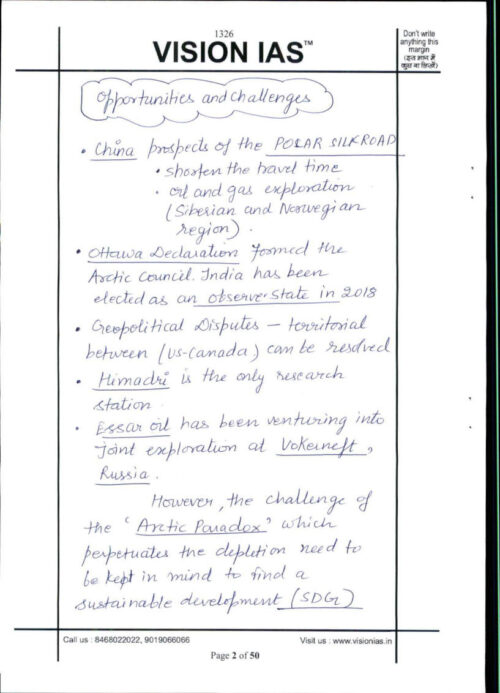 1326
VISION IAS™
Don't write
anything this
margin
(इस भाग में
कुछ ना लिखें)
Opportunities and challenges
• China prospects of the POLAR SILKROAD
• shorten the travel time
• oil and gas exploration
(Siberian and Norwegian
region).
• Ottawa Declaration formed the
Arctic Council. India has been
elected as an observer state in 2018
• Geopolitical Disputes – territorial
between (US-Canada) can be resolved
• Himadri is the only research
station.
• Essar oil has been venturing into
joint exploration at Vokeineft,
Russia.
However, the challenge of
the 'Arctic Paradox' which
perpetuates the depletion need to
be kept in mind to find a
sustainable development (SDG)
Call us : 8468022022, 9019066066
Visit us : www.visionias.in
Page 2 of 50